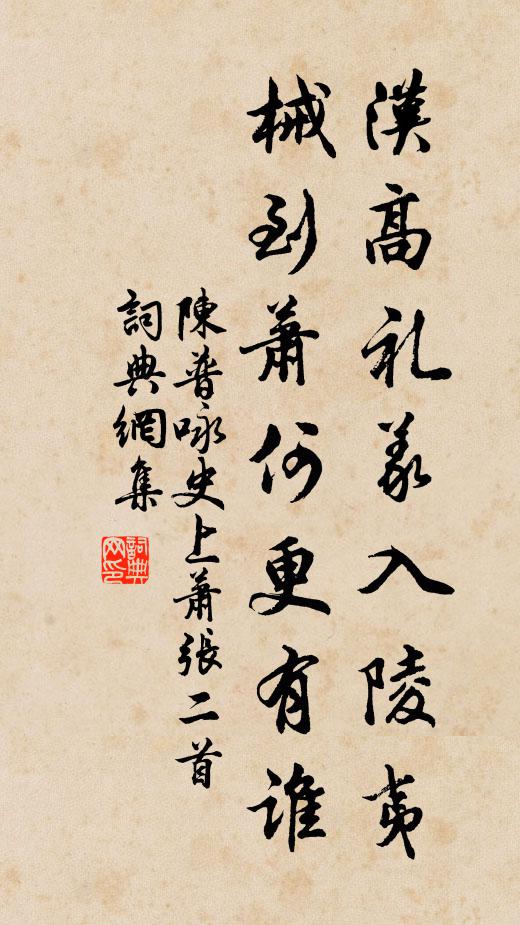 漢高礼義入陵夷
械到蕭何更有誰
陳普咏史上蕭張二首
詞典網集
詞典网印